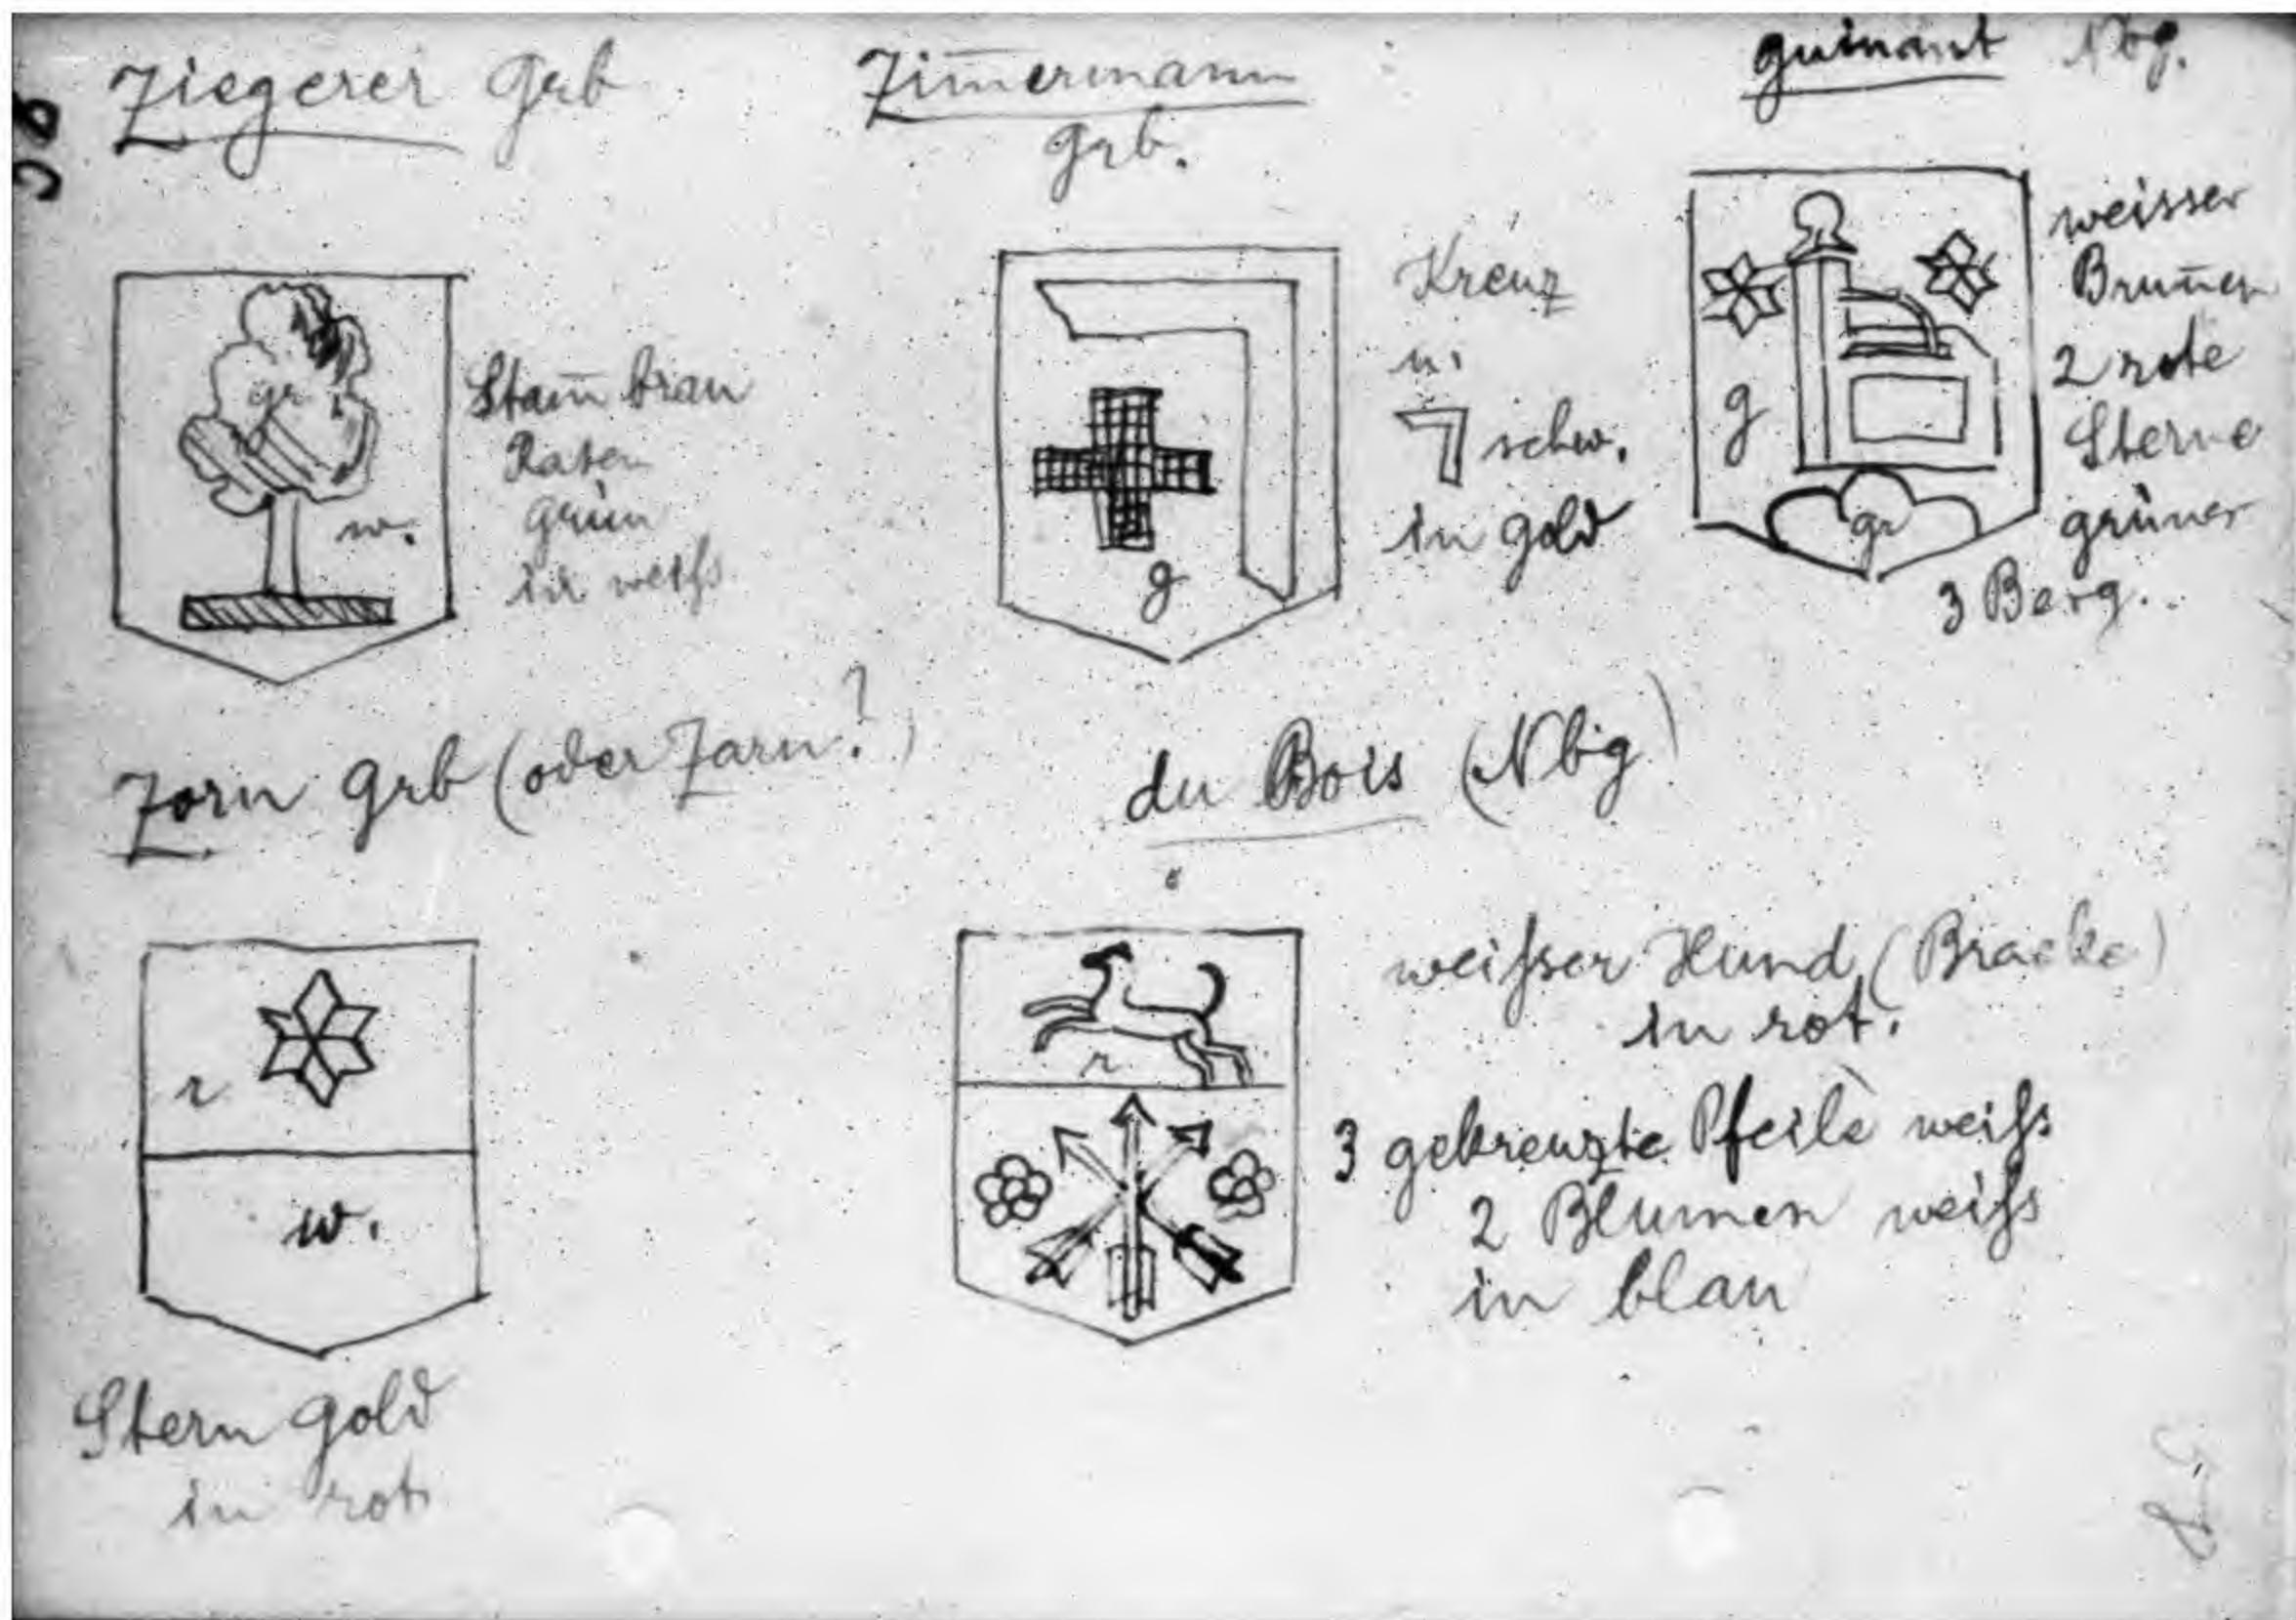 98
Ziegerer Grb
gr
w.
Stam̄ braun
Rasen
grün
in weiss
Zim̄ermann
Grb.
g
Kreuz
u.
schw.
in gold
Nbg.
g
gr
weisser
Brun̄en
2 rote
Sterne
grüner
3 Berg..
Zorn Grb (oder Zarn?)
r
w.
Stern gold
in rot
du Bois (Nbg)
r
weisser Hund (Bracke)
in rot.
3 gekreuzte Pfeile weiss
2 Blumen weiss
in blau